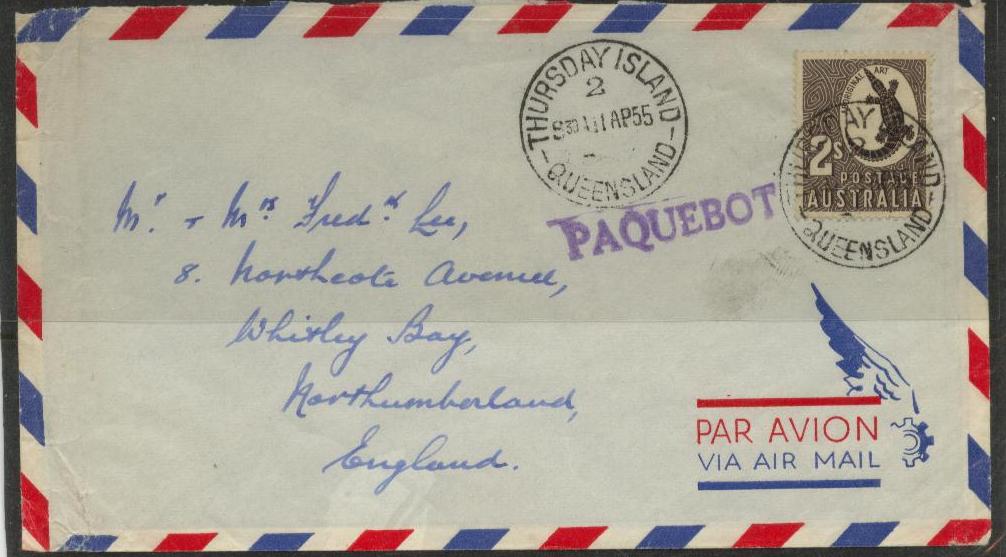 THURSDAY ISLAND
2
930 A 11 AP 55
QUEENSLAND
ORIGINAL ART
2s
POSTAGE
AUSTRALIA
AY
LAND
QUEENSLAND
PAQUEBOT
Mr. + Mrs Fredk Lee,
8. Northcote Avenue,
Whitley Bay,
Northumberland,
England.
PAR AVION
VIA AIR MAIL